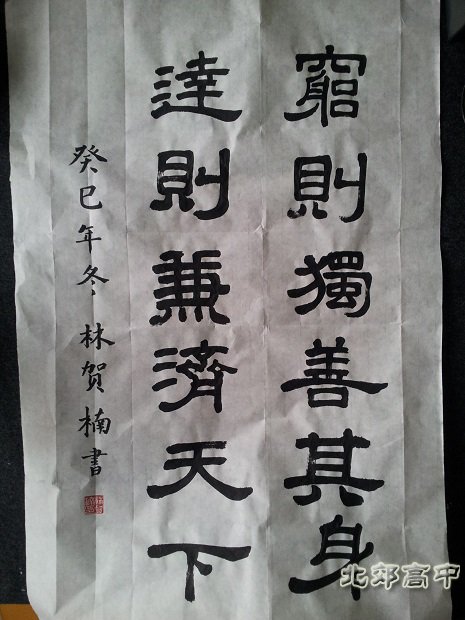 窮則獨善其身
達則兼濟天下
癸巳年冬 林贺楠書
北郊高中